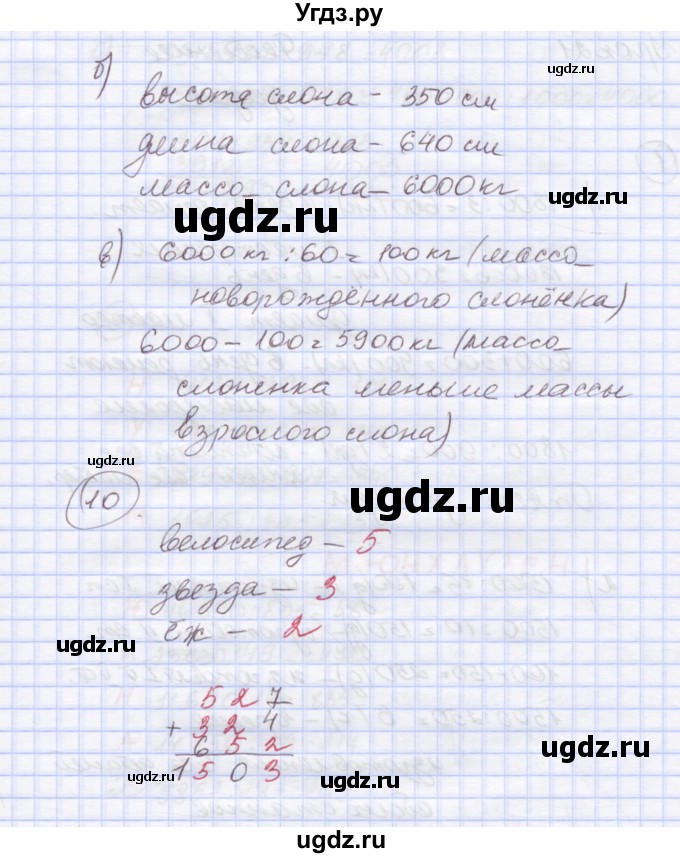 Угдз.ру
б)
ugdz.ru
высота слона - 350 см
длина слона - 640 см
массо слона - 6000 кг
ugdz.ru
ugdz.ru
в) 6000 кг : 60 = 100 кг (массо
новорождённого слонёнка)
6000 - 100 = 5900 кг (массо
слоненка меньше массы
взрослого слона)
ugdz.ru
ugdz.ru
10
ugdz.ru
велосипед - 5
звезда - 3
ugdz.ru
ёж - 2
ugdz.ru
527
+ 324
652
1503
ugdz.ru
ugdz.ru
ugdz.ru
ugdz.ru